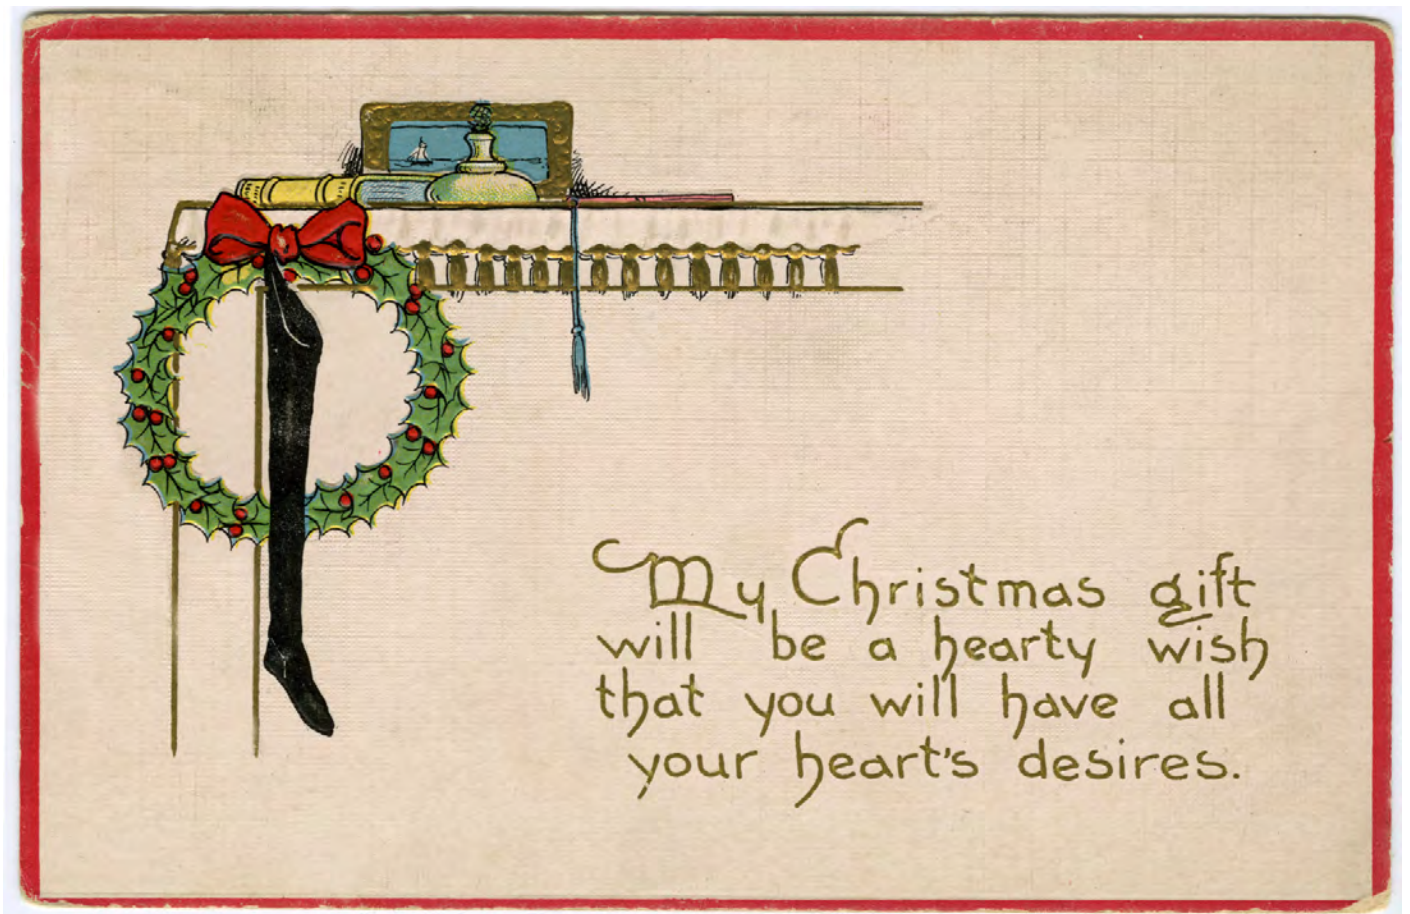 My Christmas gift
will be a hearty wish
that you will have all
your heart's desires.